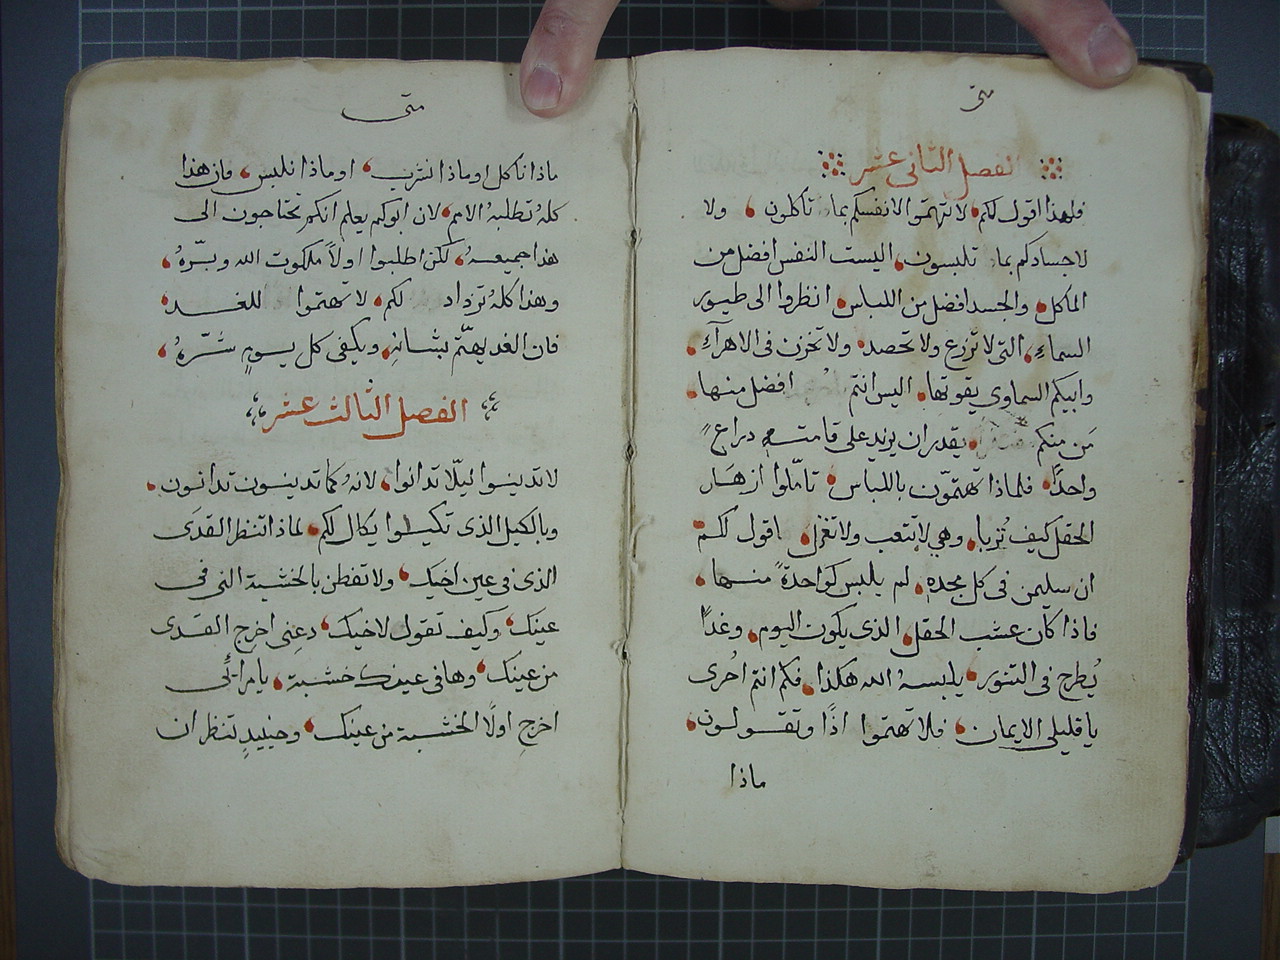 متى
الفصل الثانى عشر
فلهذا اقول لكم لا تهتموا لانفسكم بما تأكلون ولا
لاجسادكم بما تلبسون اليست النفس افضل من
المأكل والجسد افضل من اللباس انظروا الى طيور
السماء التى لا تزرع ولا تحصد ولا تخزن فى الاهرآء
وابيكم السماوى يقوتها اليس انتم افضل منها
مَن منكم يقدر ان يزيد على قامته دراع
واحدًا فلماذا تهتمّون باللباس تامّلوا ازهار
الحقل كيف تُربا وهى لا تتعب ولا تغزل اقول لكم
ان سليمن فى كل مجده لم يلبس كواحدةً منها
فاذا كان عشب الحقل الذى يكون اليوم وغدًا
يُطرح فى التنور يلبسهُ الله هكذا فكم انتم احُرى
يا قليلى الايمان فلا تهتموا اذًا وتقولون
ماذا
متى
ماذا ناكل او ماذا نشرب او ماذا نلبس فان هذا
كلهُ تطلبهُ الامم لان ابوكم يعلم انكم تحتاجون الى
هذا جميعهُ لكن اطلبوا اولاً ملكوت الله وبرّهُ
وهذا كلهُ تزداد لكم لا تهتموا للغد
فان الغد يهتمّ بشانهِ ويكفى كل يومٍ شرّهُ
الفصل الثالث عشر
لا تدينوا ليلّا تدانوا لانهُ كما تدينون تدانون
وبالكيل الذى تكيلوا يكال لكم لماذا تنظر القدَى
الذى فى عين اخيك ولا تفطن بالخشبة التى فى
عينك وكيف تقول لاخيك دعنِى اخرج القدى
من عينك وها فى عينك خشبة يا مرائى
اخرج اولًا الخشبة من عينك وحينيدٍ تنظر ان